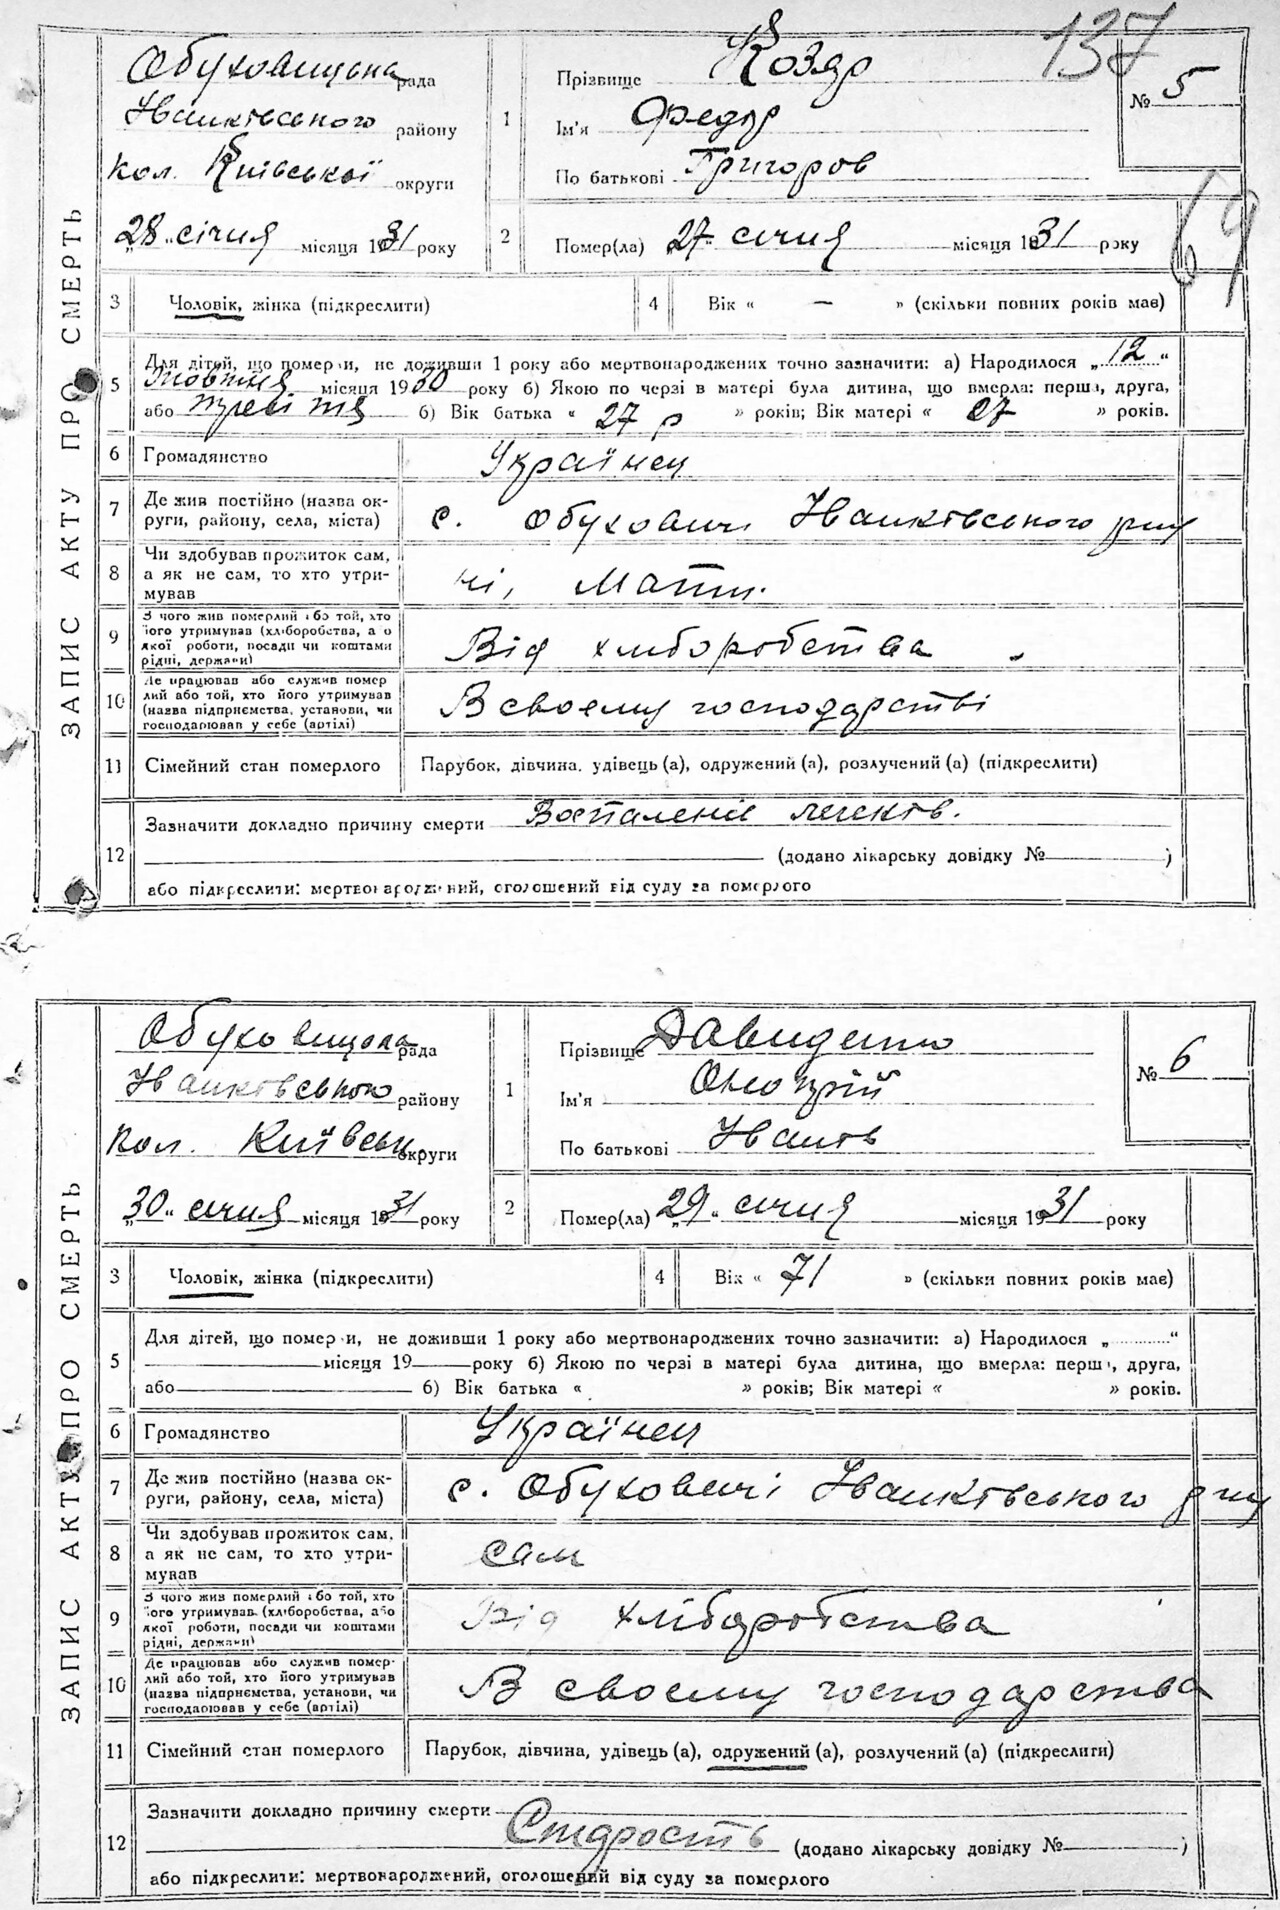 137
69
ЗАПИС АКТУ ПРО СМЕРТЬ
Обуховицька рада
Іванківського району
кол. Київської округи
„28“ січня місяця 1931 року
1 Прізвище Козяр
Ім'я Федір
По батькові Григоров
№ 5
2 Помер(ла) „27“ січня місяця 1931 року
3 Чоловік, жінка (підкреслити)
4 Вік « — » (скільки повних років має)
5 Для дітей, що померли, не доживши 1 року або мертвонароджених точно зазначити: а) Народилося „12“
Жовтня місяця 1930 року б) Якою по черзі в матері була дитина, що вмерла: перша, друга,
або третя б) Вік батька « 27 р » років; Вік матері « 27 » років.
6 Громадянство Українец
7 Де жив постійно (назва округи, району, села, міста) с. Обуховичі Іванківського р-ну
8 Чи здобував прожиток сам,
а як не сам, то хто утри-
мував ні, мати.
9 З чого жив померлий або той, хто
його утримував (хліборобства, або
якої роботи, посади чи коштами
рідні, держави) Від хліборобства
10 Де працював або служив помер
лий або той, хто його утримував
(назва підприємства, установи, чи
господарював у себе (артілі) В своему господарстві
11 Сімейний стан померлого Парубок, дівчина, удівець (а), одружений (а), розлучений (а) (підкреслити)
12 Зазначити докладно причину смерти Воспаленіє легенів.
(додано лікарську довідку № )
або підкреслити: мертвонароджений, оголошений від суду за померлого
ЗАПИС АКТУ ПРО СМЕРТЬ
Обуховицька рада
Іванківського району
кол. Київськ округи
„30“ січня місяця 1931 року
1 Прізвище Давиденко
Ім'я Онопрій
По батькові Іванів
№ 6
2 Помер(ла) „29“ січня місяця 1931 року
3 Чоловік, жінка (підкреслити)
4 Вік « 71 » (скільки повних років має)
5 Для дітей, що померли, не доживши 1 року або мертвонароджених точно зазначити: а) Народилося „ “
місяця 19 року б) Якою по черзі в матері була дитина, що вмерла: перша, друга,
або б) Вік батька « » років; Вік матері « » років.
6 Громадянство Українец
7 Де жив постійно (назва ок-
руги, району, села, міста) с. Обуховичі Іванківського р-ну
8 Чи здобував прожиток сам,
а як не сам, то хто утри-
мував сам
9 З чого жив померлий або той, хто
його утримував (хліборобства, або
якої роботи, посади чи коштами
рідні, держави) Від хліборобства
10 Де працював або служив помер-
лий або той, хто його утримував
(назва підприємства, установи, чи
господарював у себе (артілі) В своему господарства
11 Сімейний стан померлого Парубок, дівчина, удівець (а), одружений (а), розлучений (а) (підкреслити)
12 Зазначити докладно причину смерти
Старость (додано лікарську довідку № )
або підкреслити: мертвонароджений, оголошений від суду за померлого